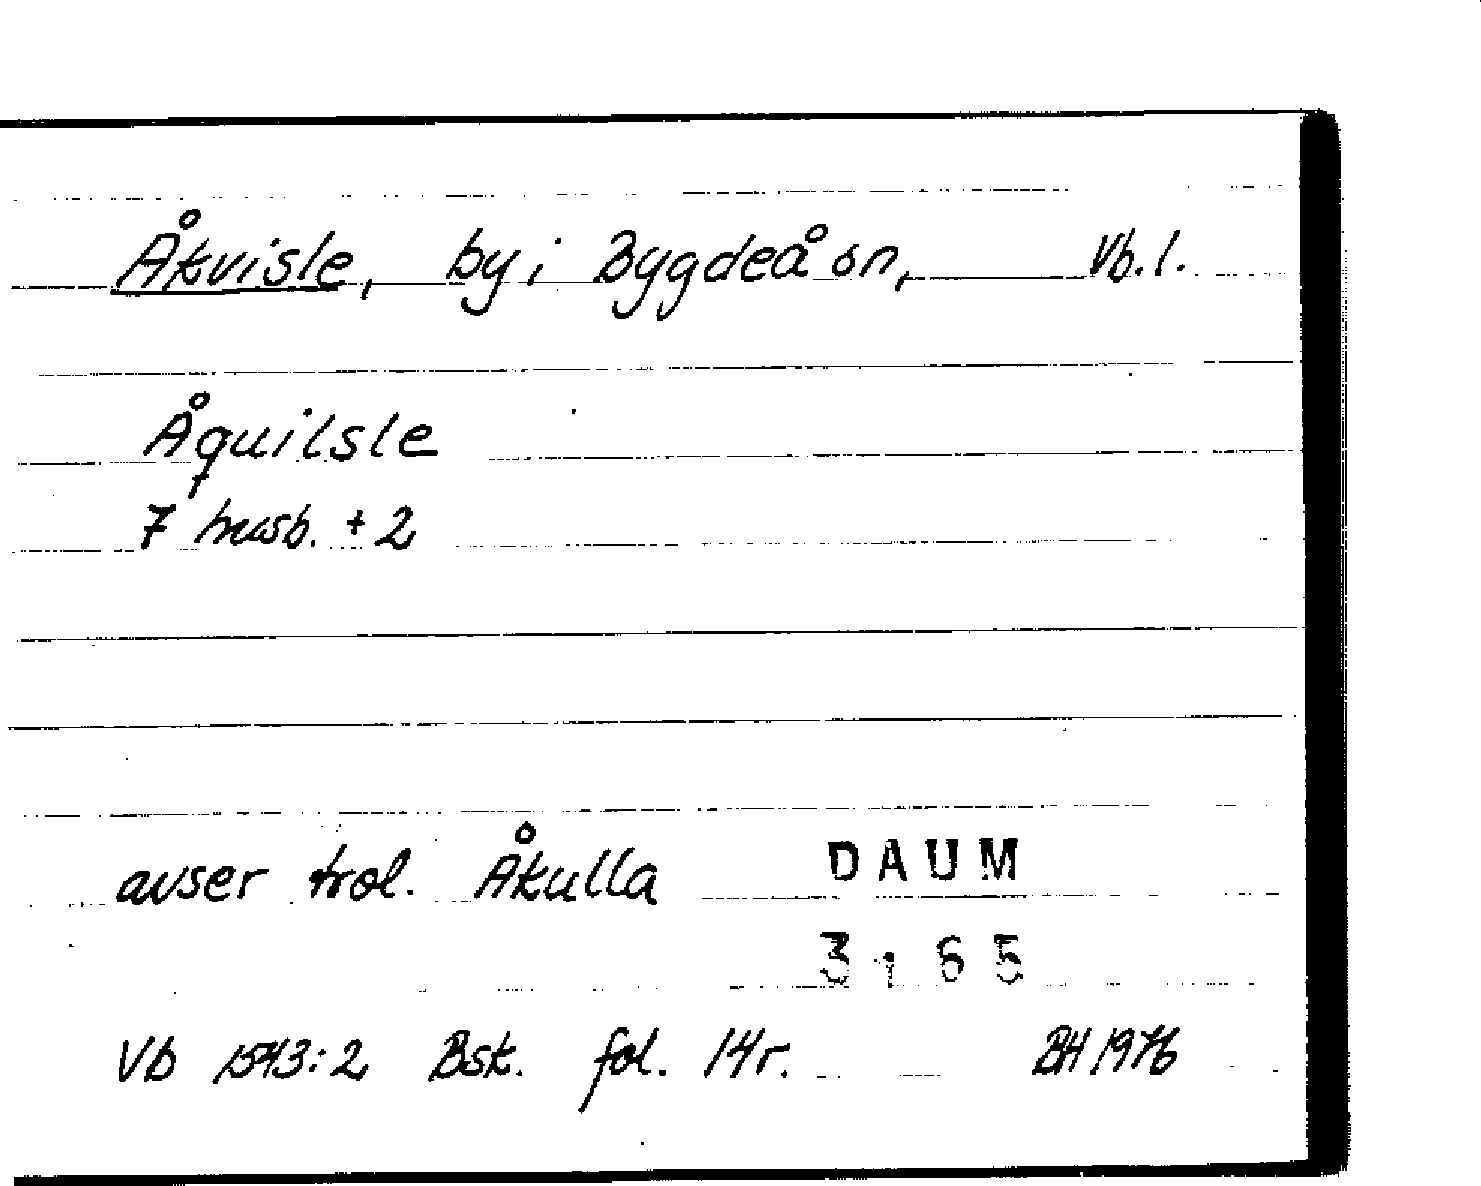 Åkvisle, by i Bygdeå sn, Vb.l.
Åquilsle
7 husb. + 2
avser trol. Åkulla
DAUM
3:65
Vb 1543:2 Bsk. fol. 14r. BH 1976